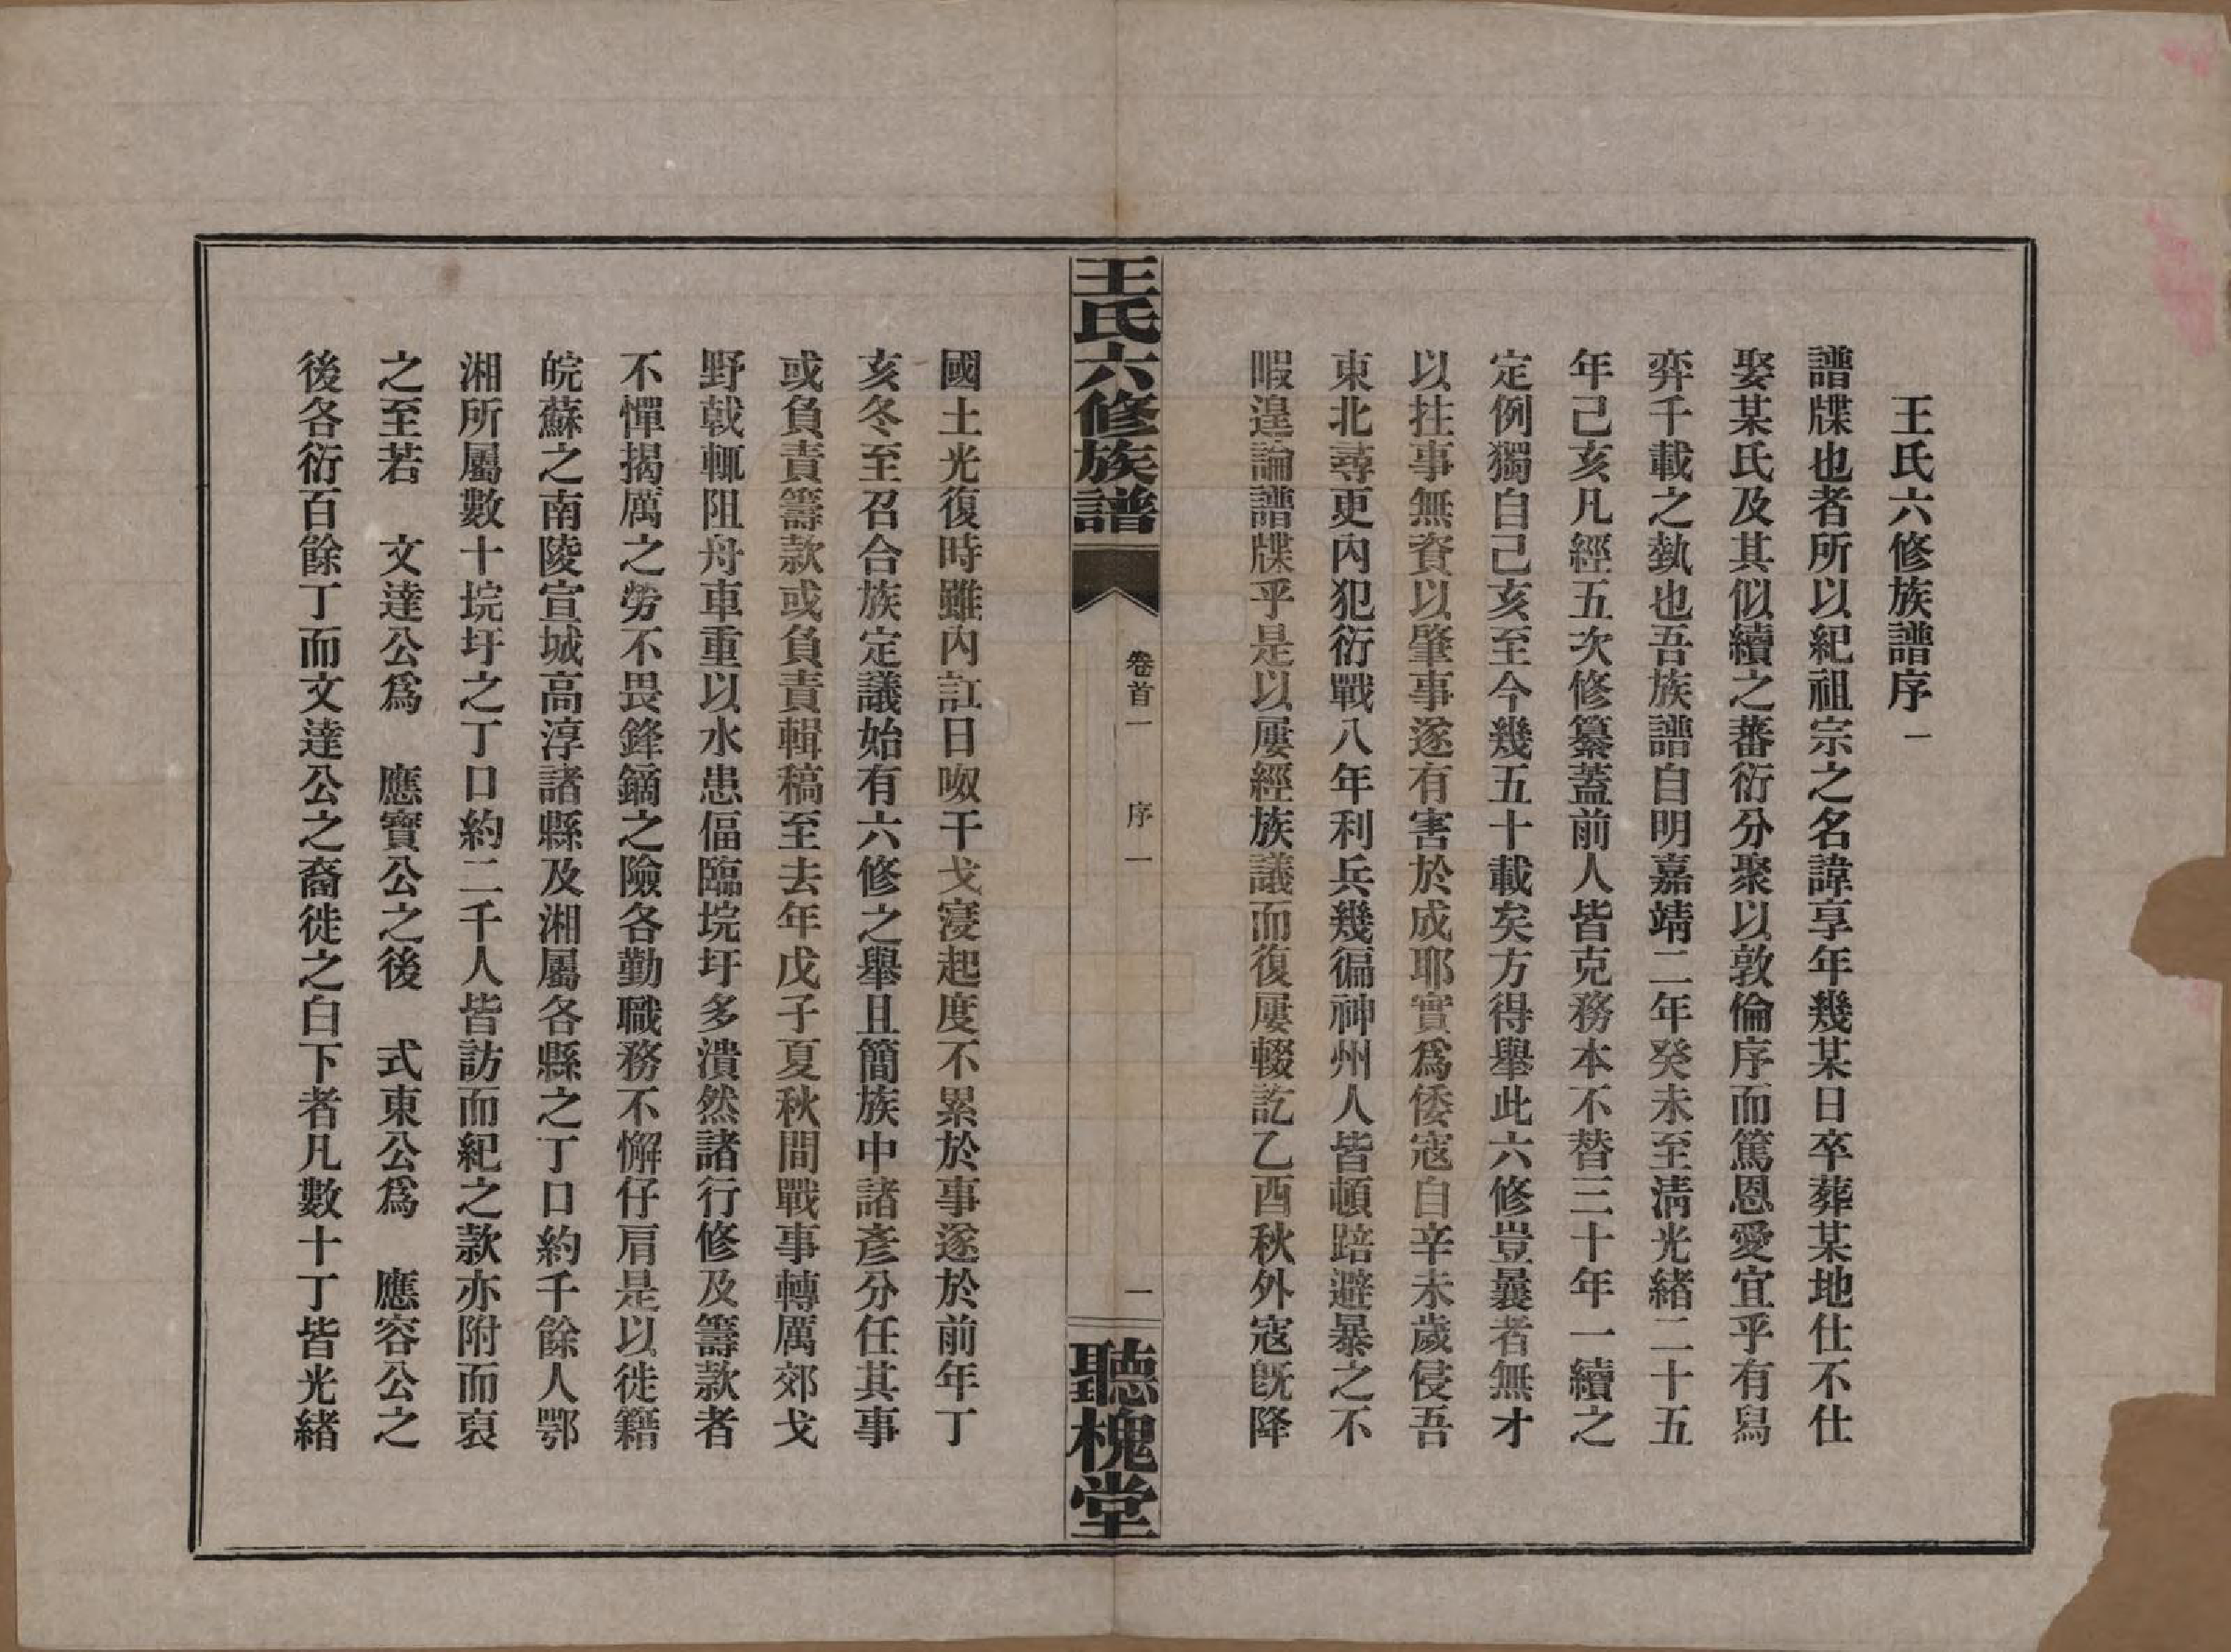 王氏六修族譜序一
譜牒也者所以紀祖宗之名諱享年幾某日卒葬某地仕不仕
娶某氏及其似續之蕃衍分聚以敦倫序而篤恩愛宜乎有舄
弈千載之埶也吾族譜自明嘉靖二年癸未至清光緒二十五
年己亥凡經五次修纂蓋前人皆克務本不替三十年一續之
定例獨自己亥至今幾五十載矣方得舉此六修豈曩者無才
以拄事無資以肇事遂有害於成耶實爲倭寇自辛未歲侵吾
東北尋更內犯衍戰八年利兵幾徧神州人皆頓踣避暴之不
暇遑論譜牒乎是以屢經族議而復屢輟訖乙酉秋外寇旣降
王氏六修族譜
卷首一　序一
一
聽槐堂
國土光復時雖內訌日呶干戈寖起度不累於事遂於前年丁
亥冬至召合族定議始有六修之舉且簡族中諸彥分任其事
或負責籌款或負責輯稿至去年戊子夏秋間戰事轉厲郊戈
野戟輒阻舟車重以水患偪臨垸圩多潰然諸行修及籌款者
不憚揭厲之勞不畏鋒鏑之險各勤職務不懈仔肩是以徙籍
皖蘇之南陵宣城高淳諸縣及湘屬各縣之丁口約千餘人鄂
湘所屬數十垸圩之丁口約二千人皆訪而紀之款亦附而裒
之至若　文達公爲　應寶公之後　式東公爲　應容公之
後各衍百餘丁而文達公之裔徙之白下者凡數十丁皆光緒